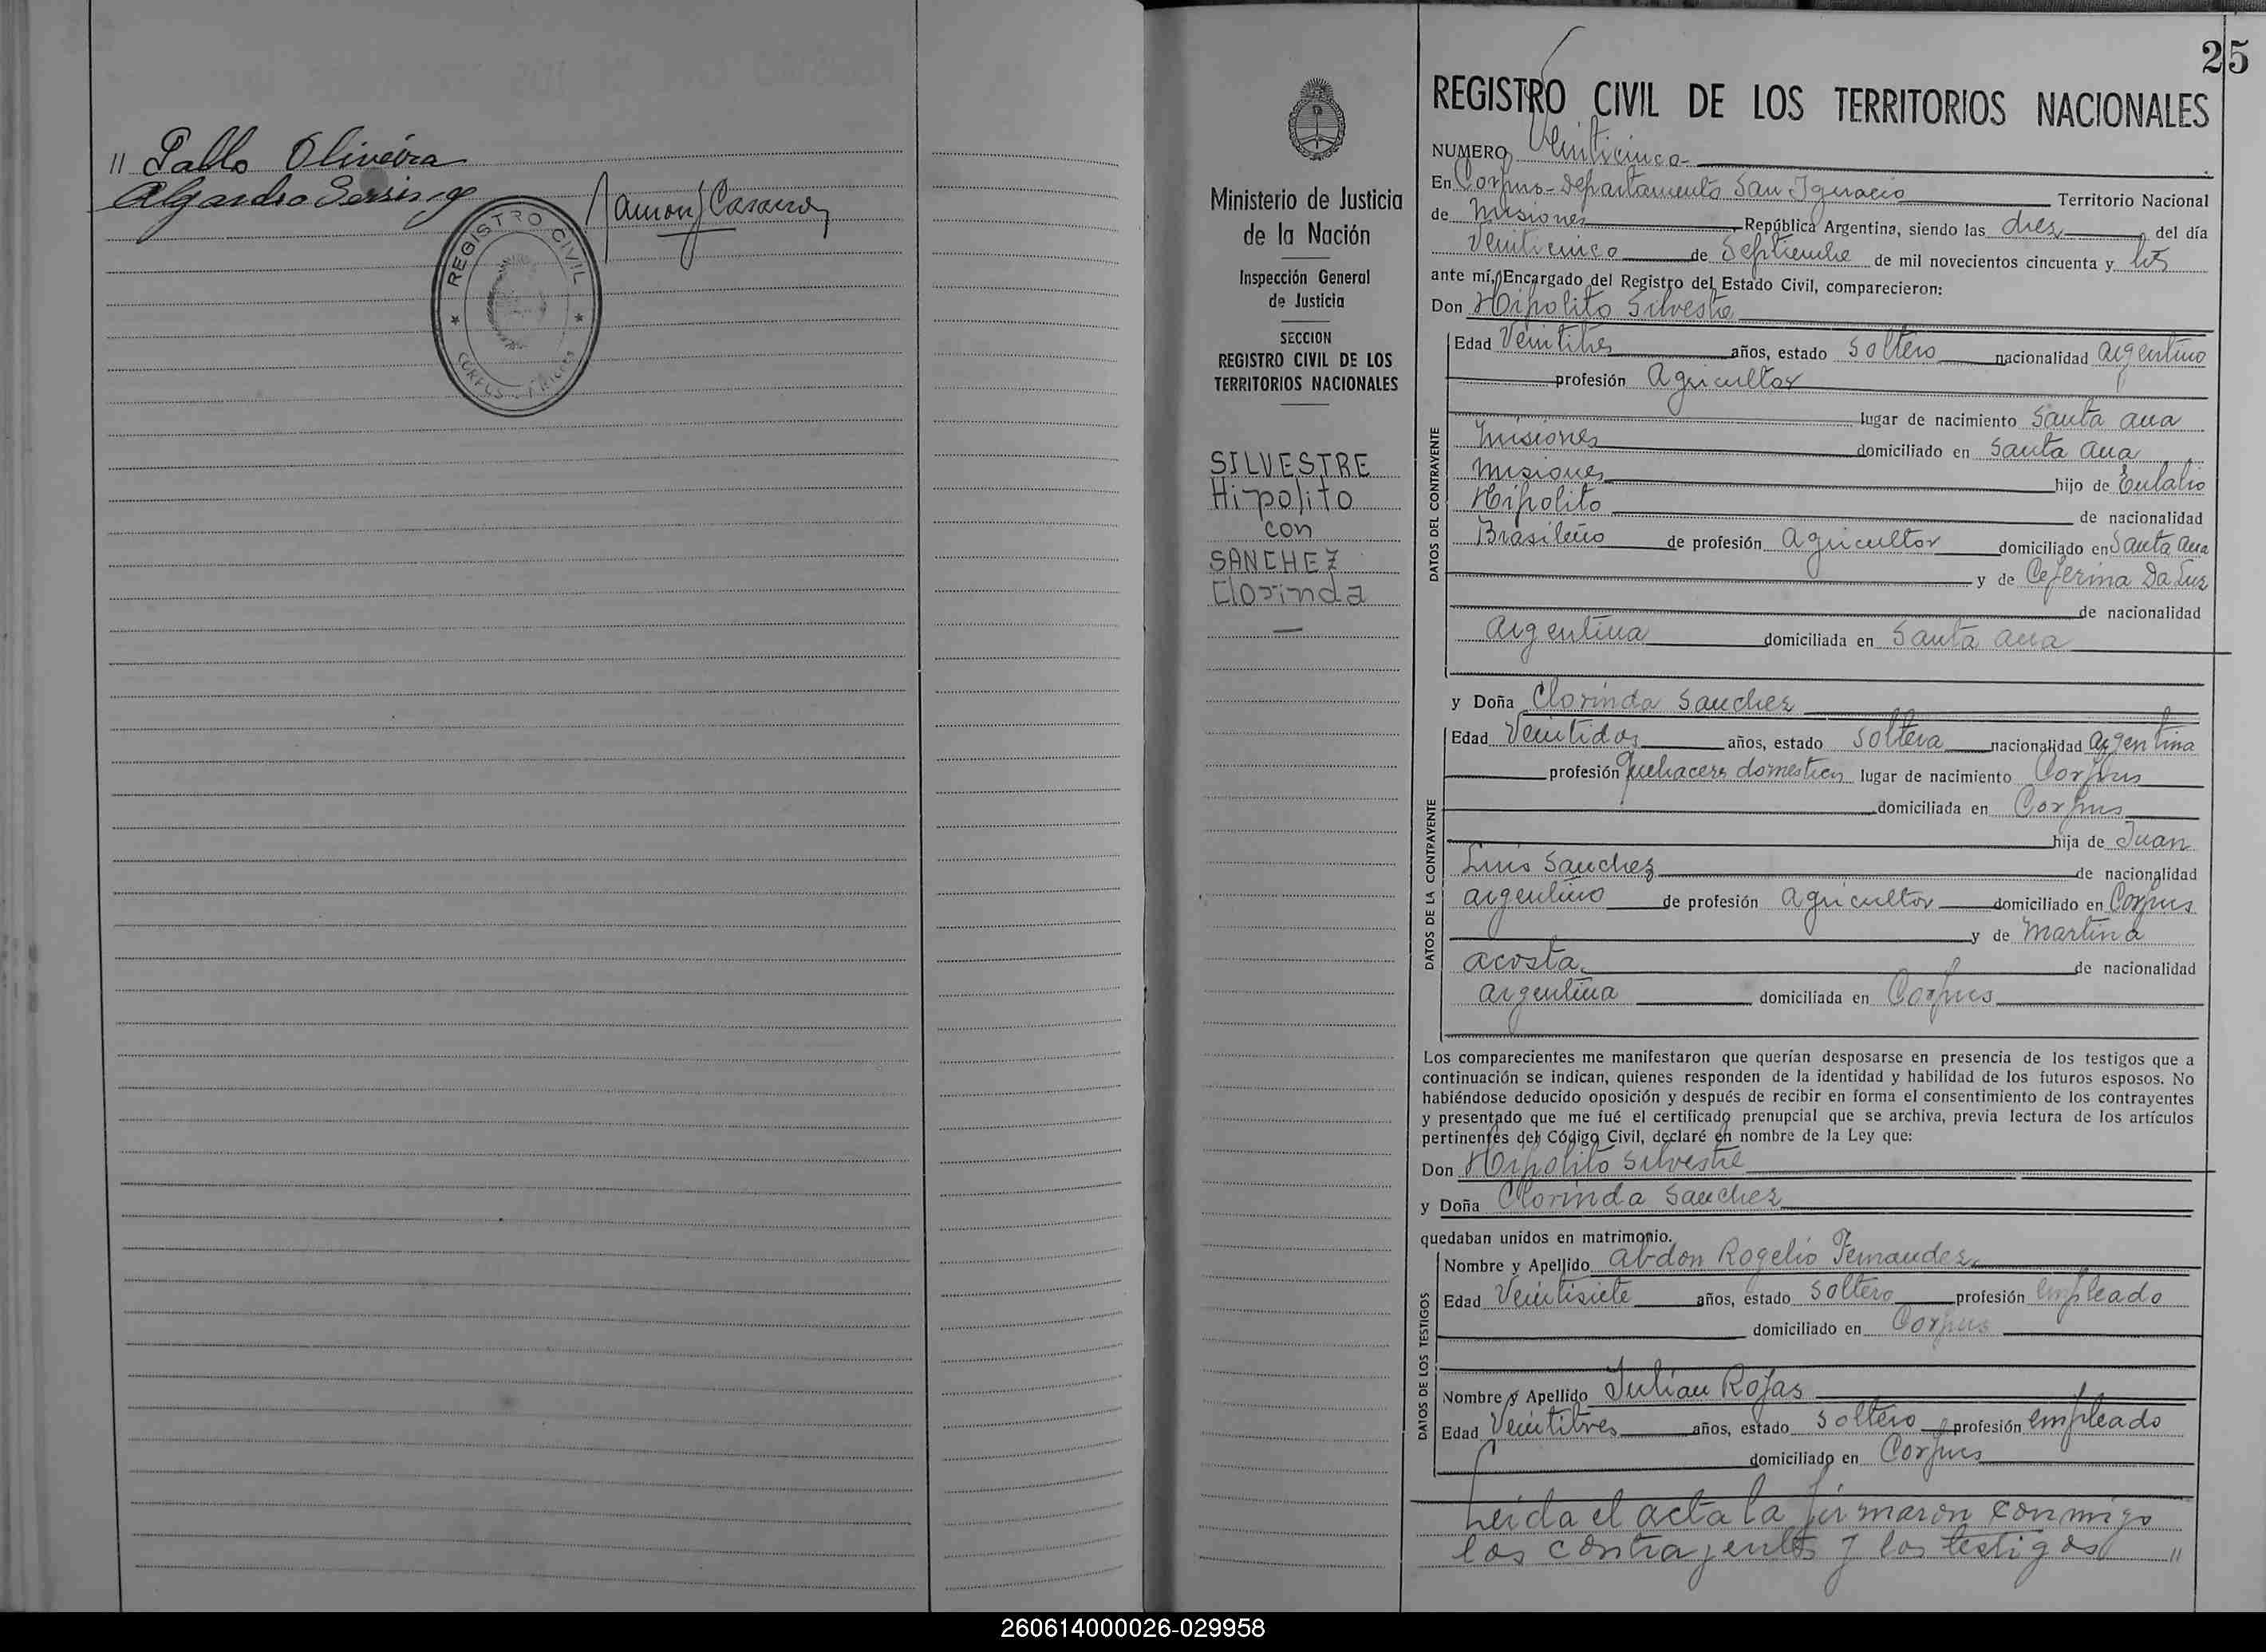 " Pablo Oliveira
REGISTRO CIVIL
CORPUS
25
Ministerio de Justicia
de la Nación
Inspección General
de Justicia
SECCION
REGISTRO CIVIL DE LOS
TERRITORIOS NACIONALES
SILVESTRE
Hipolito
con
SANCHEZ
Clorinda
REGISTRO CIVIL DE LOS TERRITORIOS NACIONALES
NUMERO Veinticinco
En Corpus - Departamento San Ignacio Territorio Nacional
de Misiones, República Argentina, siendo las diez del día
Veinticinco de Septiembre de mil novecientos cincuenta y
ante mí, Encargado del Registro del Estado Civil, comparecieron:
Don Hipolito Silvestre
DATOS DEL CONTRAYENTE
Edad Veintitres años, estado Soltero nacionalidad argentino
profesión Agricultor
lugar de nacimiento Santa Ana
Misiones domiciliado en Santa Ana
Misiones hijo de Eulalio
Hipolito de nacionalidad
Brasileño de profesión Agricultor domiciliado en Santa Ana
y de Ceferina Da Luz
de nacionalidad
argentina domiciliada en Santa Ana
y Doña Clorinda Sanchez
DATOS DE LA CONTRAYENTE
Edad Veintidos años, estado Soltera nacionalidad argentina
profesión Quehaceres domesticos lugar de nacimiento Corpus
domiciliada en Corpus
hija de Juan
Luis Sanchez de nacionalidad
argentino de profesión Agricultor domiciliado en Corpus
y de Martina
acosta de nacionalidad
argentina domiciliada en Corpus
Los comparecientes me manifestaron que querían desposarse en presencia de los testigos que a
continuación se indican, quienes responden de la identidad y habilidad de los futuros esposos. No
habiéndose deducido oposición y después de recibir en forma el consentimiento de los contrayentes
y presentado que me fué el certificado prenupcial que se archiva, previa lectura de los artículos
pertinentes del Código Civil, declaré en nombre de la Ley que:
Don Hipolito Silvestre
y Doña Clorinda Sanchez
quedaban unidos en matrimonio.
DATOS DE LOS TESTIGOS
Nombre y Apellido Abdon Rogelio Fernandez
Edad Veintisiete años, estado Soltero profesión empleado
domiciliado en Corpus
Nombre y Apellido Julian Rojas
Edad Veintitres años, estado Soltero profesión empleado
domiciliado en Corpus
Leida el acta la firmaron conmigo
los contrayentes y los testigos "
260614000026-029958